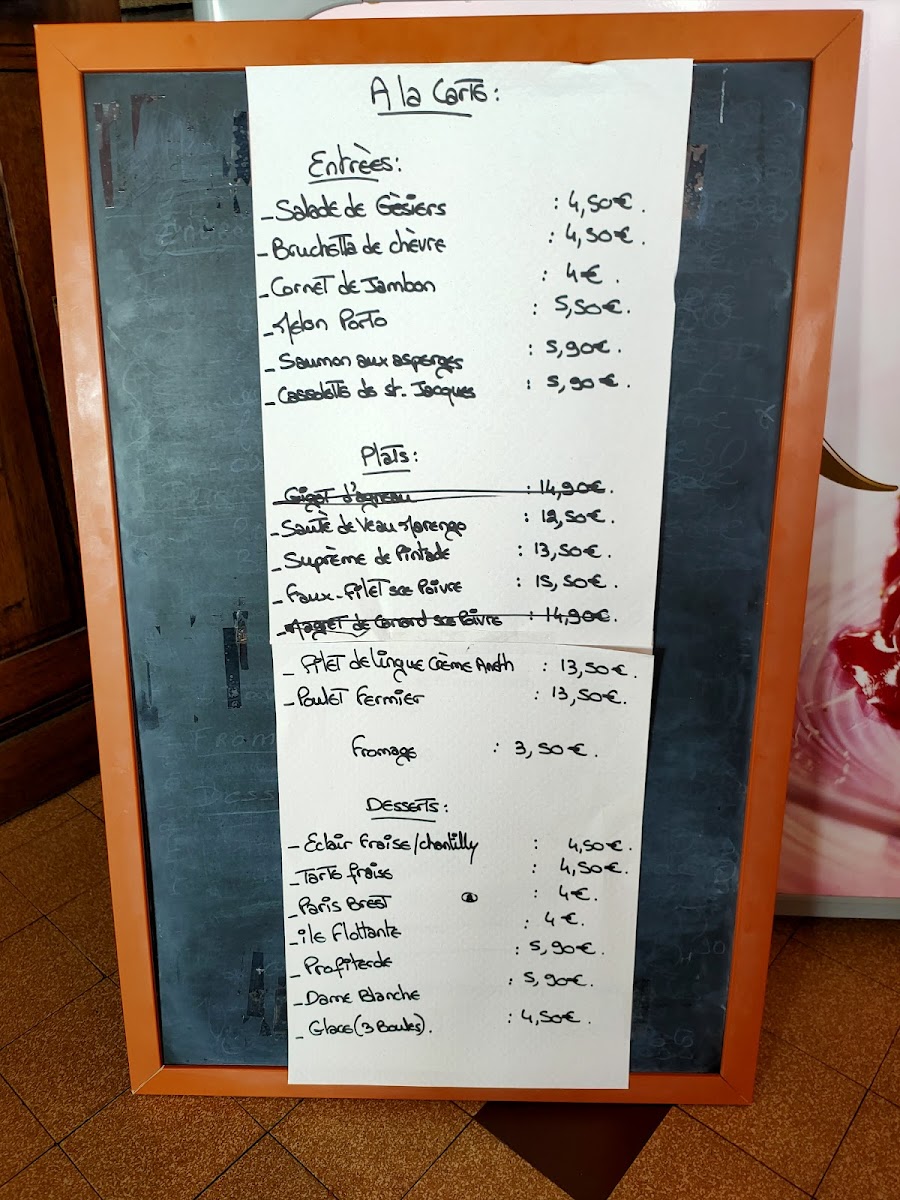 A la Carte:
Entrèes:
- Salade de Gèsiers : 4,50€.
- Bruchetta de chèvre : 4,50€.
- Cornet de Jambon : 4€.
- Melon Porto : 5,50€.
- Saumon aux asperges : 5,90€.
- Cassolette de St. Jacques : 5,90€.
Plats:
- Gigot d'agneau : 14,90€.
- Sautè de Veau Marengo : 12,50€.
- Suprème de Pintade : 13,50€.
- Faux-Filet sce Poivre : 15,50€.
- Magret de Canard sce Poivre : 14,90€.
- Filet de lingue Crème Aneth : 13,50€.
- Poulet Fermier : 13,50€.
Fromage : 3,50€.
Desserts:
- Eclair Fraise/chantilly : 4,50€.
- Tarte fraise : 4,50€.
- Paris Brest : 4€.
- ile Flottante : 4€.
- Profiterole : 5,90€.
- Dame Blanche : 5,90€.
- Glace (3 Boules). : 4,50€.